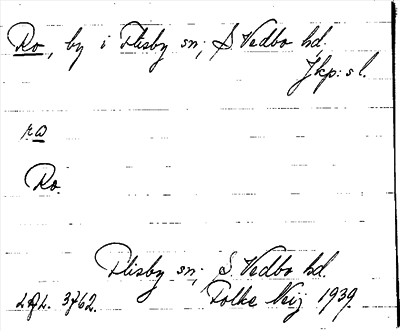 Ro, by i Flisby sn; S Vedbo hd.
Jkp: sl.
ro
Ro.
Flisby sn; S. Vedbo hd.
Folke Neij 1939.